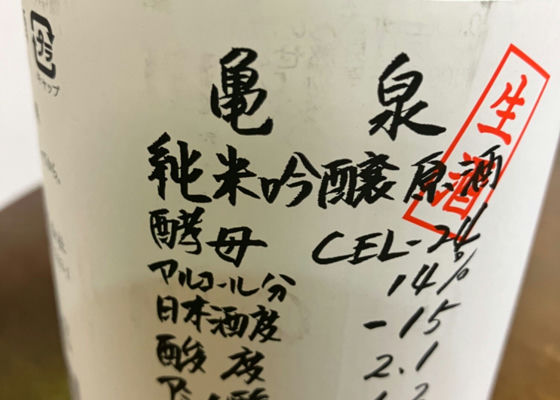 亀泉
生酒
純米吟醸原酒
酵母 CEL-24
アルコール分 14%
日本酒度 -15
酸度 2.1
プラ
キャップ